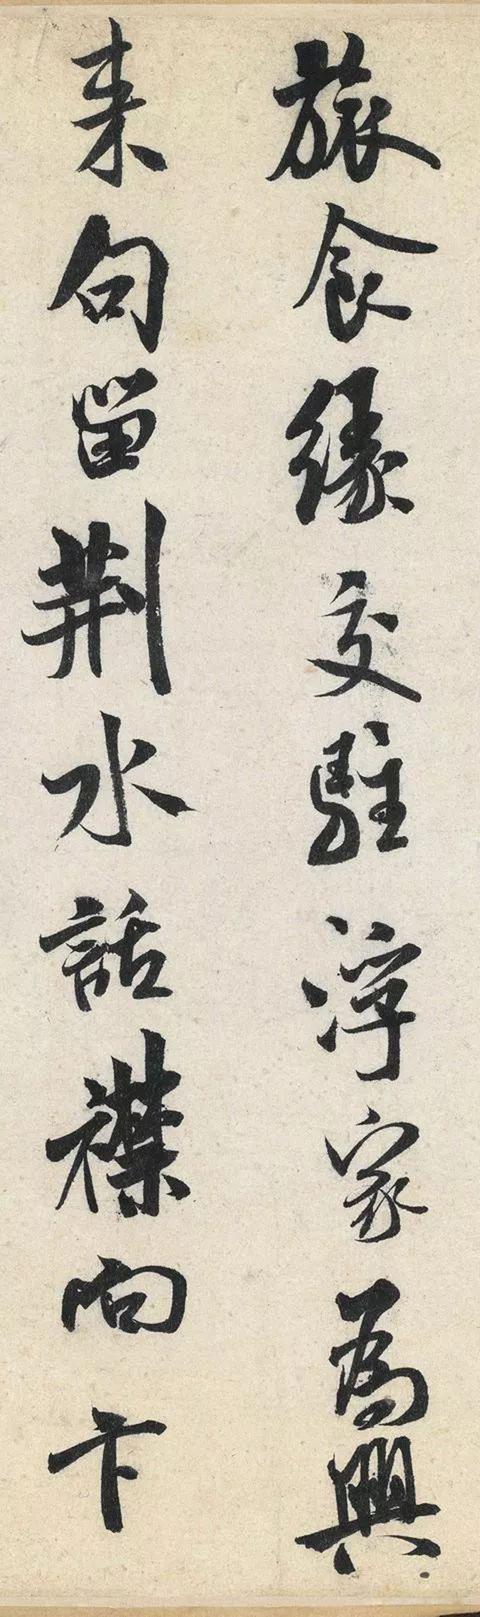 旅食緣交駐浮家為興
来句留荆水話襟向卞